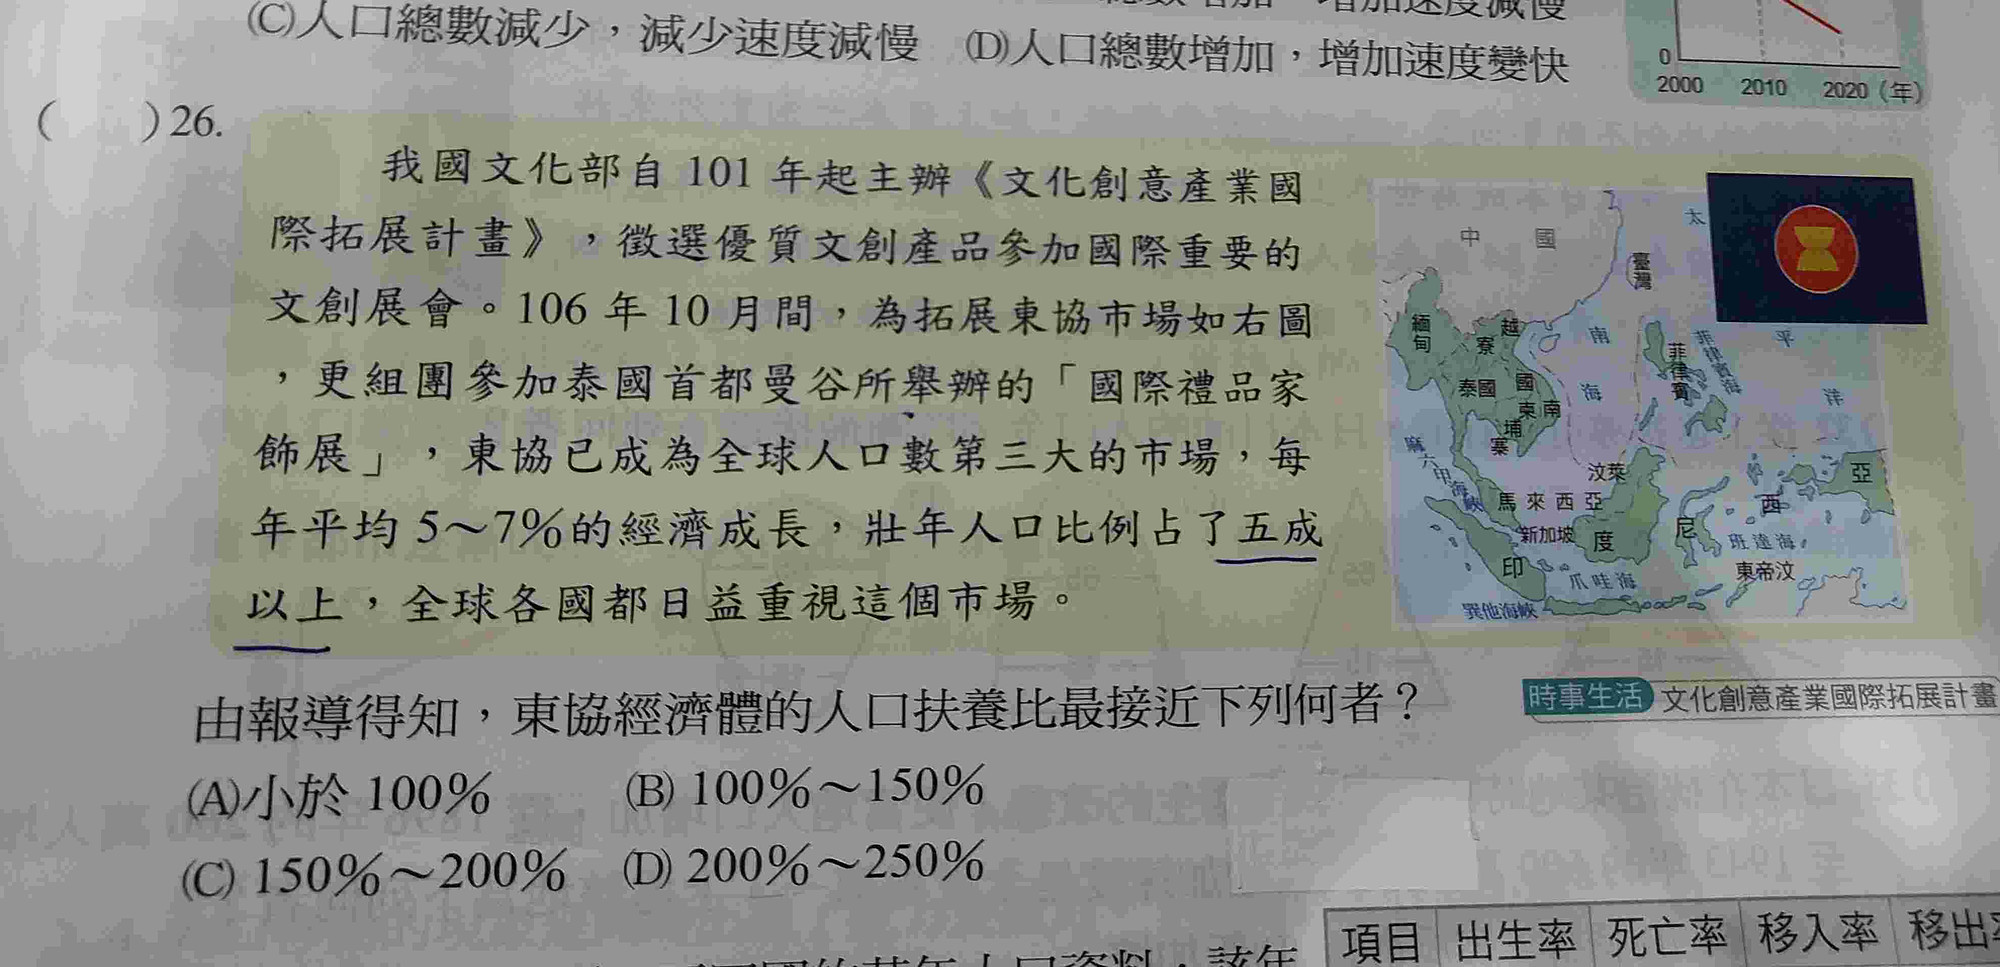 (C)人口總數減少，減少速度減慢 (D)人口總數增加，增加速度變快
0
2000 2010 2020（年）
( )26.
我國文化部自 101 年起主辦《文化創意產業國
際拓展計畫》，徵選優質文創產品參加國際重要的
文創展會。106 年 10 月間，為拓展東協市場如右圖
，更組團參加泰國首都曼谷所舉辦的「國際禮品家
飾展」，東協已成為全球人口數第三大的市場，每
年平均 5～7％的經濟成長，壯年人口比例占了五成
以上，全球各國都日益重視這個市場。
中國
臺灣
太平洋
緬甸
寮國
越南
泰國
柬埔寨
南海
菲律賓
菲律賓海
麻六甲海峽
汶萊
馬來西亞
新加坡
印度尼西亞
班達海
東帝汶
爪哇海
巽他海峽
由報導得知，東協經濟體的人口扶養比最接近下列何者？
時事生活 文化創意產業國際拓展計畫
(A)小於 100％ (B) 100％～150％
(C) 150％～200％ (D) 200％～250％
項目 出生率 死亡率 移入率 移出